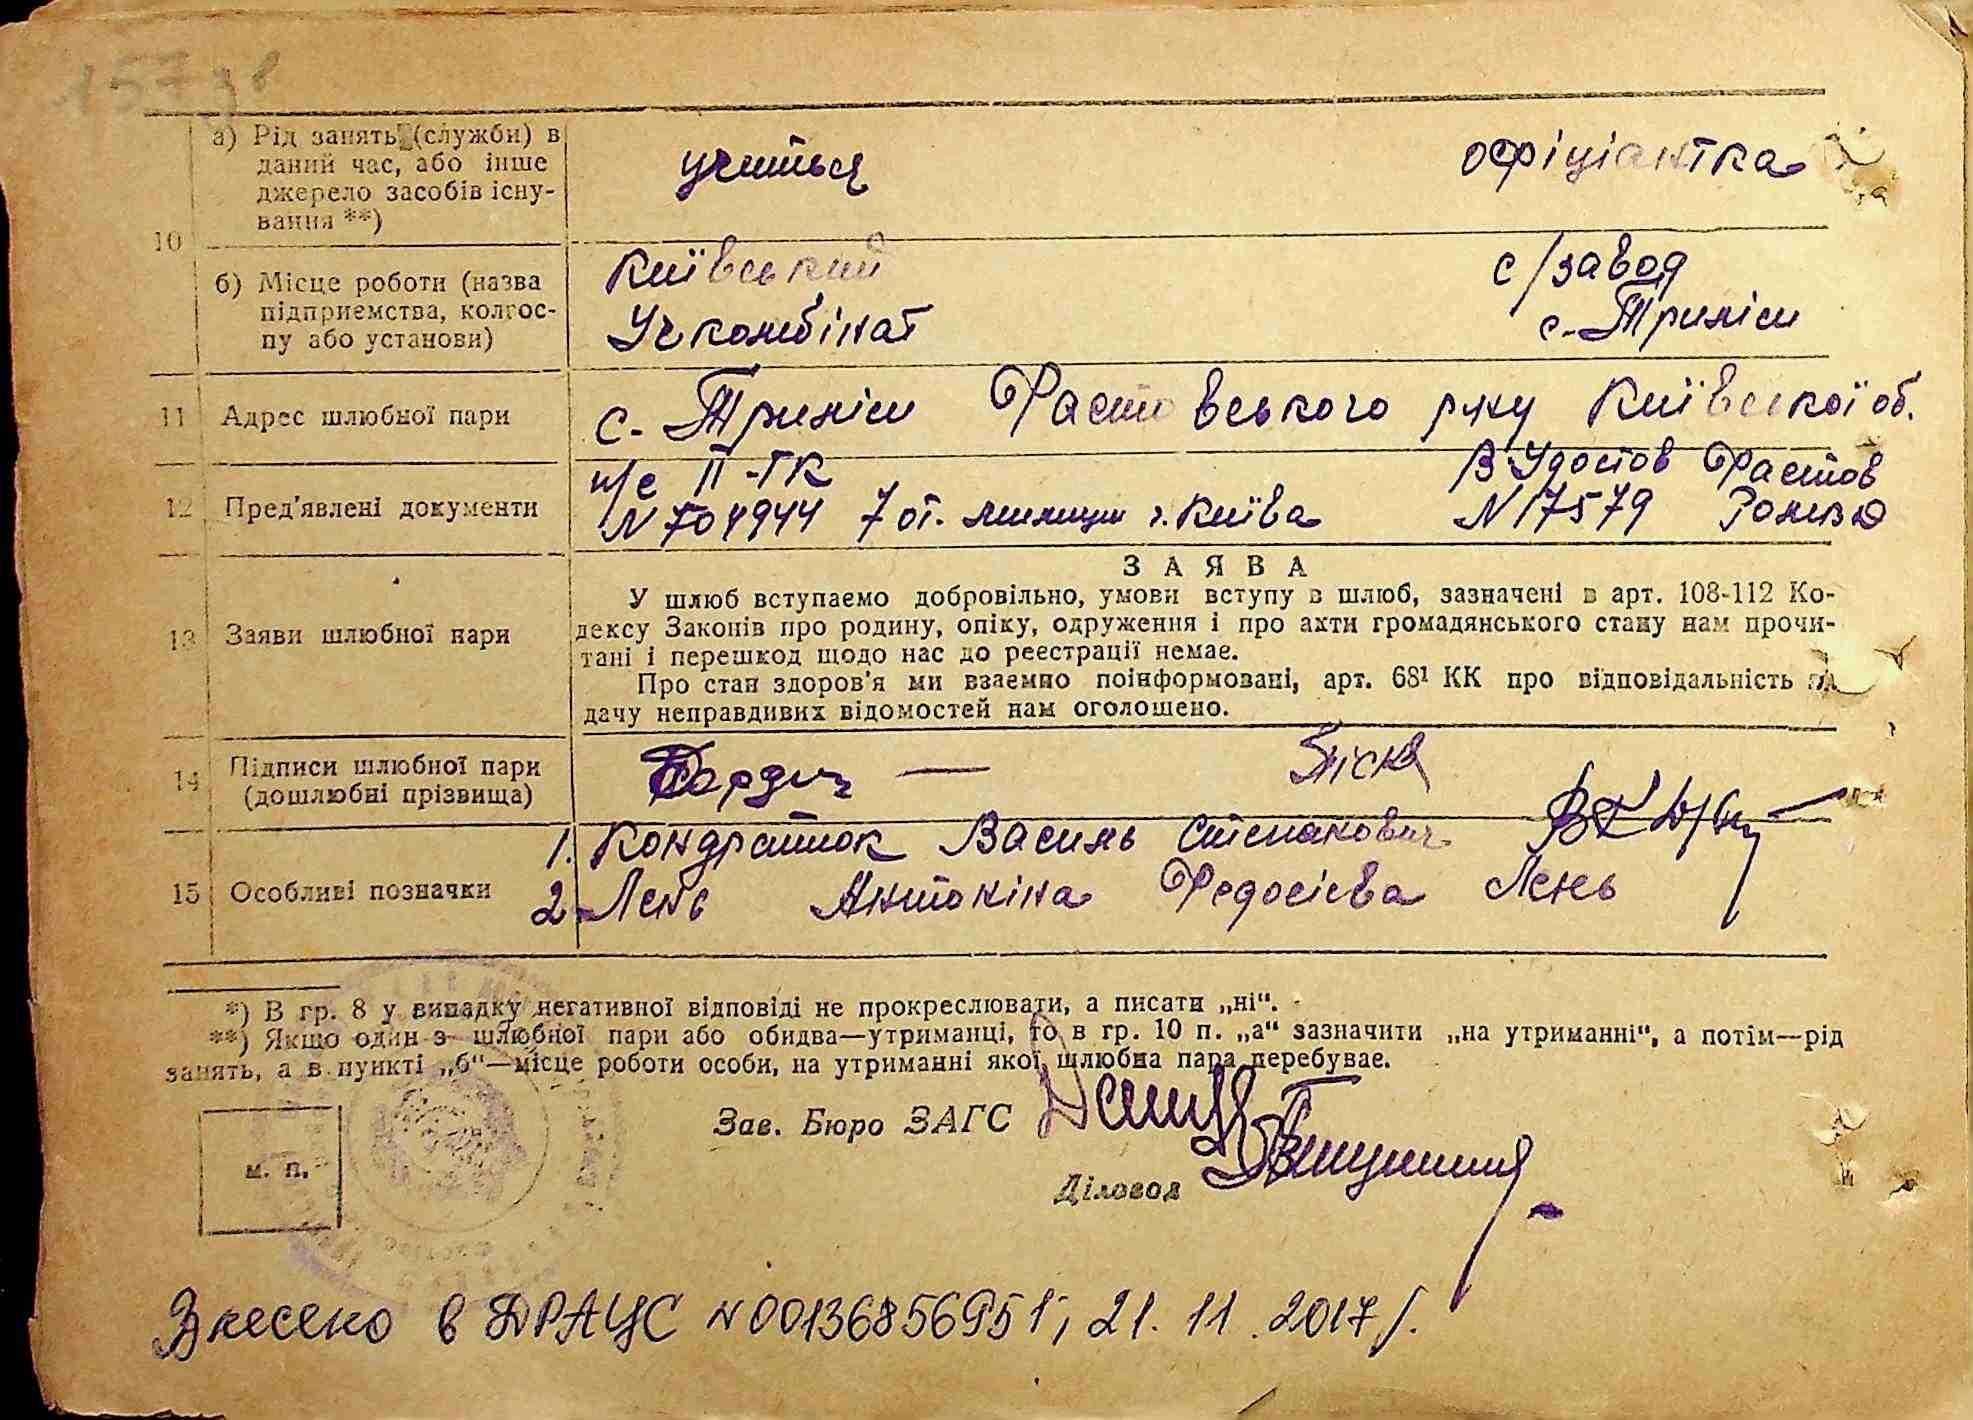 157зв
10 а) Рід занять (служби) в даний час, або інше джерело засобів існування **) учиться офіціантка
б) Місце роботи (назва підприємства, колгоспу або установи) Київський Учкомбінат с/завод с. Триліси
11 Адрес шлюбної пари с. Триліси Фастовського р-ну Київської об.
12 Пред'явлені документи п/с ІІ-ГК N 704944 7 от. милиции г. Київа В. Удостов Фастов N 17579
13 Заяви шлюбної пари
ЗАЯВА
У шлюб вступаємо добровільно, умови вступу в шлюб, зазначені в арт. 108-112 Ко-
дексу Законів про родину, опіку, одруження і про акти громадянського стану нам прочи-
тані і перешкод щодо нас до реєстрації немає.
Про стан здоров'я ми взаємно поінформовані, арт. 68¹ КК про відповідальність за
дачу неправдивих відомостей нам оголошено.
14 Підписи шлюбної пари (дошлюбні прізвища)
15 Особливі позначки
1. Кондратюк Василь Степанович
2. Лень Антоніна Федосієва Лень
*) В гр. 8 у випадку негативної відповіді не прокреслювати, а писати „ні“.
**) Якщо один з шлюбної пари або обидва—утриманці, то в гр. 10 п. „а“ зазначити „на утриманні“, а потім—рід
занять, а в пункті „б“—місце роботи особи, на утриманні якої шлюбна пара перебуває.
Зав. Бюро ЗАГС
м. п.
Діловод
Внесено в ДРАЦС N00136856951, 21. 11. 2017 р.